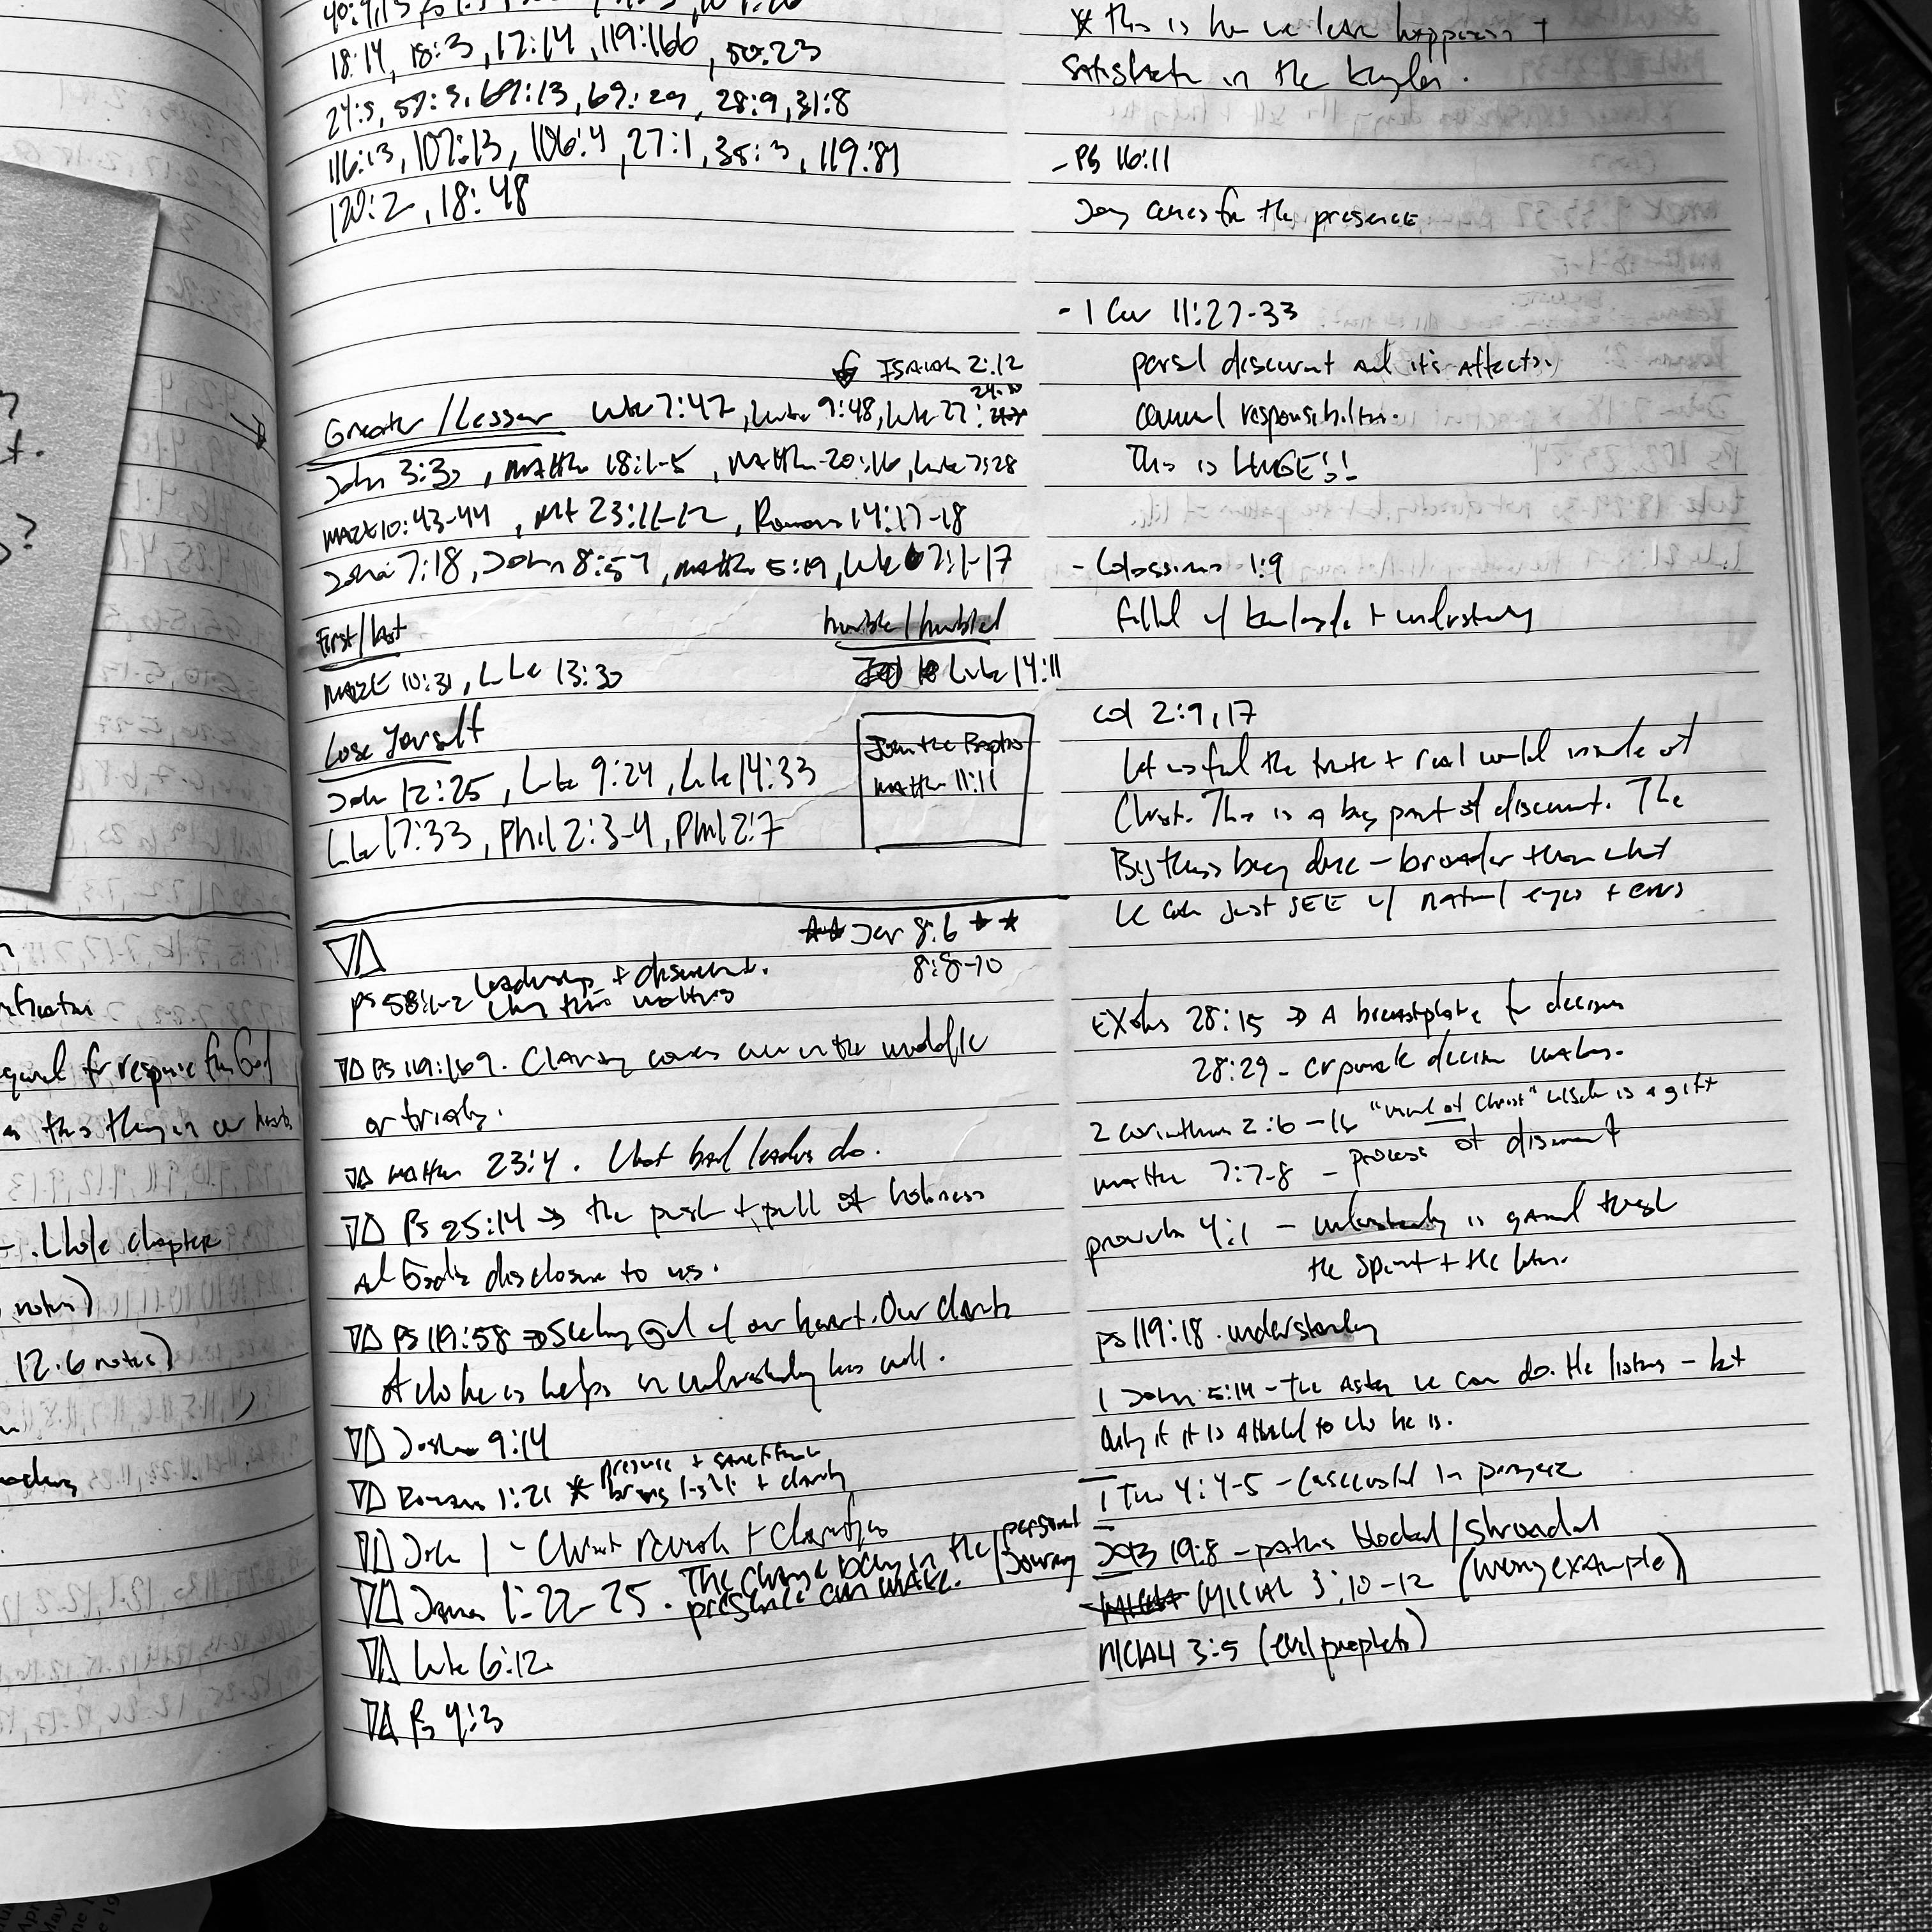 18:14, 18:3, 17:14, 119:166, 50:23
24:5, 57:3, 69:13, 69:29, 28:9, 31:8
116:13, 107:13, 106:4, 27:1, 35:3, 119:81
120:2, 18:48
Isaiah 2:12
Greater/Lesser Luke 7:47, Luke 9:48, Luke 22:
24:
John 3:30, Matthew 18:1-5, Matthew 20:16, Luke 7:28
Mark 10:43-44, Mt 23:11-12, Romans 14:17-18
John 7:18, John 8:57, Matthew 5:19, Luke 7:1-17
First/last
humble/humbled
Mark 10:31, Luke 13:30
Luke 14:11
Lose Yourself
John 12:25, Luke 9:24, Luke 14:33
Luke 17:33, Phil 2:3-4, Phil 2:7
John the Baptist
Matthew 11:11
Jer 8:6
8:8-10
Ps 58:1-2 Leadership + discernment.
why this matters
Ps 119:169. Clarity comes even in the middle
or trials.
Matthew 23:4. What bad leaders do.
Ps 25:14 → the push + pull of holiness
and God's disclosure to us.
Ps 119:58 → Seeking God w/ our heart. Our clarity
of who he is helps in understanding his will.
Joshua 9:14
Romans 1:21 * presence + sanctification
brings light + clarity
John 1 - Christ reveals + clarifies
James 1:22-25. The change being in the
presence can make.
personal
journey
Luke 6:12
Ps 4:3
* this is how we learn happiness +
satisfaction in the kingdom.
- Ps 16:11
Joy comes from the presence
- 1 Cor 11:27-33
discernment and it's affects.
communal responsibilities.
This is HUGE!!
- Colossians 1:9
filled w/ knowledge + understanding
Col 2:9, 17
Let us find the truth + real world inside of
Christ. This is a big part of discernment. The
Big things being done - broader than what
we can just SEE w/ natural eyes + ears
Exodus 28:15 → A breastplate for decision
28:29 - corporate decision making.
2 Corinthians 2:6-16 "mind of Christ" which is a gift
Matthew 7:7-8 - process of discernment
Proverbs 4:1 - understanding is gained through
the Spirit + the
Ps 119:18. understanding
1 John 5:14 - the asking we can do. He listens - but
only if it is attached to who he is.
1 Tim 4:4-5 - in prayer
Job 19:8 - paths blocked/shrouded
Micah 3:10-12 (wrong example)
Micah 3:5 (evil prophets)
. Whole chapter
notes)
12:6 notes)